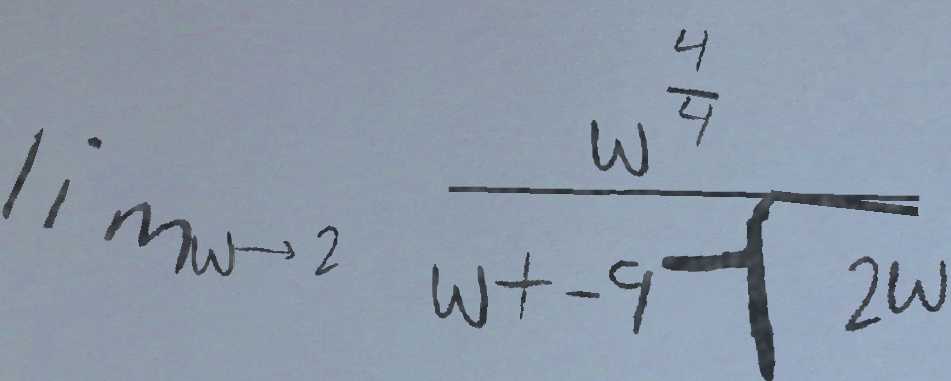 lim_{w→2} \frac{w^{\frac{4}{4}}}{w+-9\sqrt{2w}}